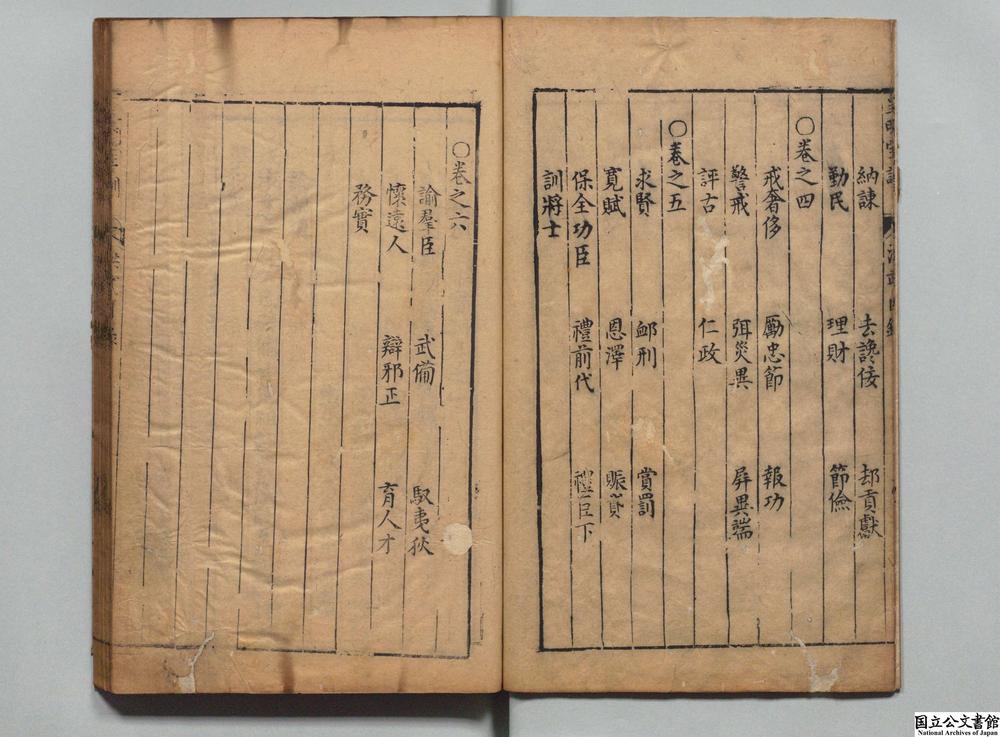 皇明寶訓
納諫 去讒佞 却貢獻
勤民 理財 節儉
○卷之四
戒奢侈 勵忠節 報功
警戒 弭災異 屏異端
評古 仁政
○卷之五
求賢 卹刑 賞罰
寬賦 恩澤 賑貸
保全功臣 禮前代 禮臣下
訓將士
○卷之六
諭羣臣 武備 馭夷狄
懷遠人 辯邪正 育人才
務實
国立公文書館
National Archives of Japan